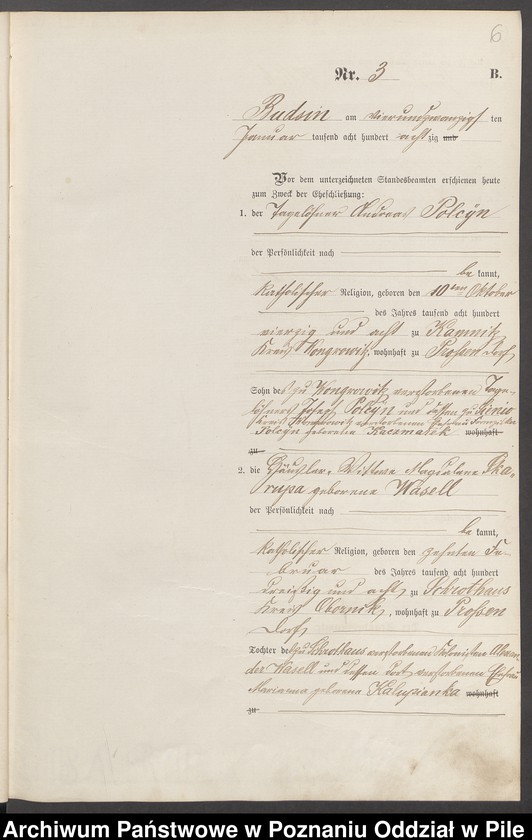 6
Nr. 3 B.
Budsin am vierundzwanzigsten
Januar tausend acht hundert achtzig und
Vor dem unterzeichneten Standesbeamten erschienen heute
zum Zweck der Eheschließung:
1. der Tagelöhner Andreas Polcÿn
der Persönlichkeit nach
bekannt,
katholischer Religion, geboren den 10ten Oktober
des Jahres tausend acht hundert
vierzig und acht zu Kamnik
Kreis Wongrowitz, wohnhaft zu Prossen Dorf
Sohn des zu Wongrowitz verstorbenen Tage-
löhners Josef Polcÿn und dessen zu
Kreis Wongrowitz verstorbenen Ehefrau
Polcyn geborene Kaczmarek wohnhaft
zu
2. die Häusler-Wittwe Magdalena Ska-
rupa geborene Wasell
der Persönlichkeit nach
bekannt,
katholischer Religion, geboren den zehnten Fe-
bruar des Jahres tausend acht hundert
dreißig und acht zu Schrothaus
Kreis Obornik, wohnhaft zu Prossen
Dorf
Tochter des zu Schrothaus verstorbenen Alexan-
der Wasell und dessen dort verstorbenen Ehefrau
Marianna geborene Kalupianka wohnhaft
zu
Archiwum Państwowe w Poznaniu Oddział w Pile